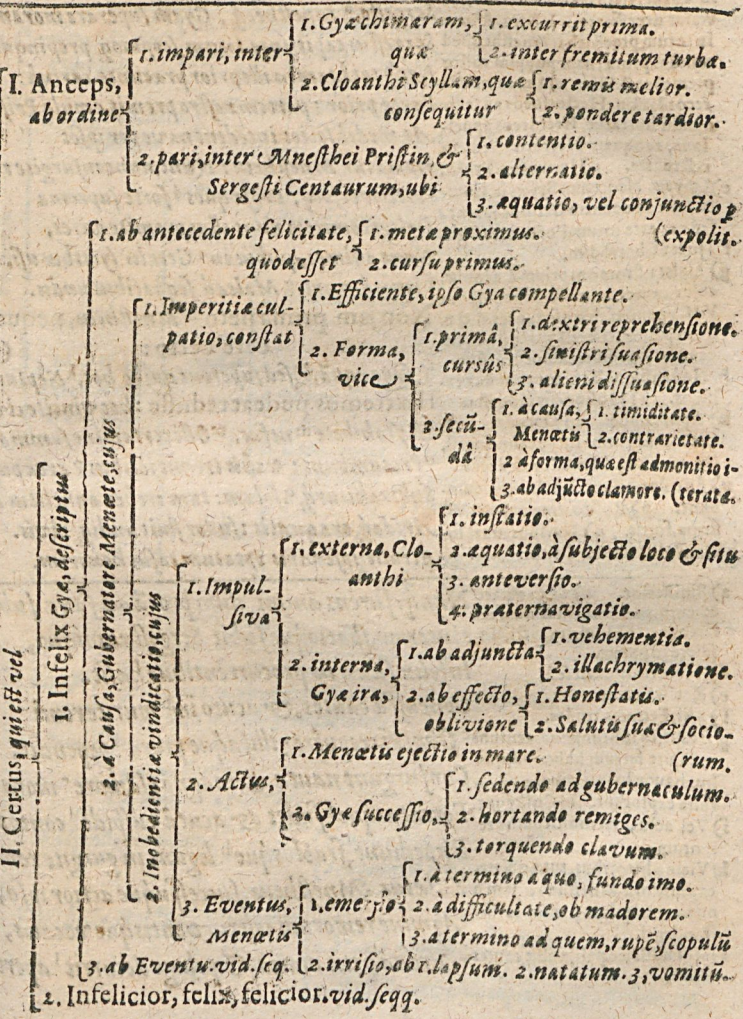 I. Anceps,
ab ordine
1. impari, inter
1. Gyæ chimæram,
quæ
1. excurrit prima.
2. inter fremitum turbæ.
2. Cloanthi Scyllam, quæ
consequitur
1. remis melior.
2. pondere tardior.
2. pari, inter Mnesthei Pristin, &
Sergesti Centaurum, ubi
1. contentio.
2. alternatio.
3. æquatio, vel conjunctio p
(expolit.
II. Certus, qui est vel
1. Infelix Gyæ, descriptus
1. ab antecedente felicitate,
quòd esset
1. metæ proximus.
2. cursu primus.
2. à Causa, Gubernatore Menœte, cujus
1. Imperitiæ cul-
patio, constat
1. Efficiente, ipso Gya compellante.
2. Forma,
vice
1. primâ,
cursûs
1. dextri reprehensione.
2. sinistri suasione.
3. alieni dissuasione.
2. secū-
dâ
1. à causa,
Menœtis
1. timiditate.
2. contrarietate.
2 à forma, quæ est admonitio i-
3. ab adjūcto clamore. (terata.
2. Inobedientiæ vindicatio, cujus
1. Impul-
siva
1. externa, Clo-
anthi
1. instatio.
2. æquatio, à subjecto loco & situ
3. anteversio.
4. præternavigatio.
2. interna,
Gyæ ira,
1. ab adjuncta
1. vehementia.
2. illachrymatione.
2. ab effecto,
oblivione
1. Honestatis.
2. Salutis suæ & socio-
(rum.
2. Actus,
1. Menœtis ejectio in mare.
2. Gyæ successio,
1. sedendo ad gubernaculum.
2. hortando remiges.
3. torquendo clavum.
3. Eventus,
Menœtis
1. emersio
1. à termino à quo, fundo imo.
2. à difficultate, ob madorem.
3. a termino ad quem, rupē, scopulū
2. irrisio, ob 1. lapsum. 2. natatum. 3, vomitū.
3. ab Eventu. vid. seq.
2. Infelicior, felix, felicior. vid. seqq.